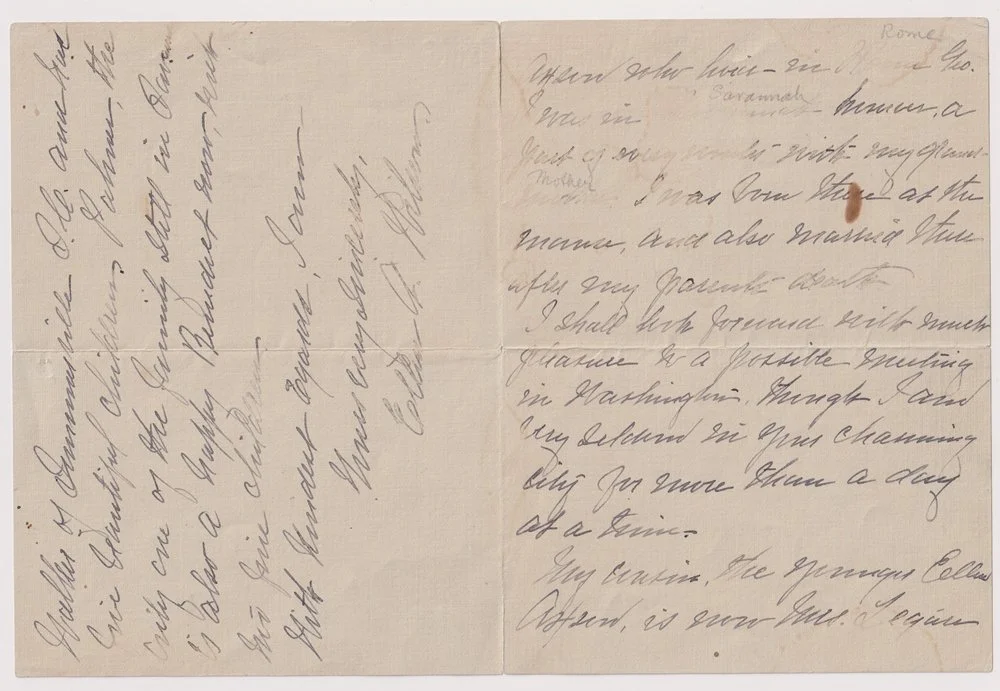 Rome
Axson who live - in Rome Ga.
I was in Savannah however, a
part of every winter with my grand-
Mother
mother. I was born there at the
manse, and also married there
after my parents death
I shall look forward with much
pleasure to a possible meeting
in Washington. Though I am
very seldom in your charming
city for more than a day
at a time.
My cousin, the younger Ellen
Axson, is now Mrs. Leguin
Walker of Summerville S.C. and has
five beautiful children. the
only one of the family still in Savan
is also a happy Benedict now, with
two fine children.
With kindest regards, I am
Yours very sincerely,
Ellen A. Wilson.